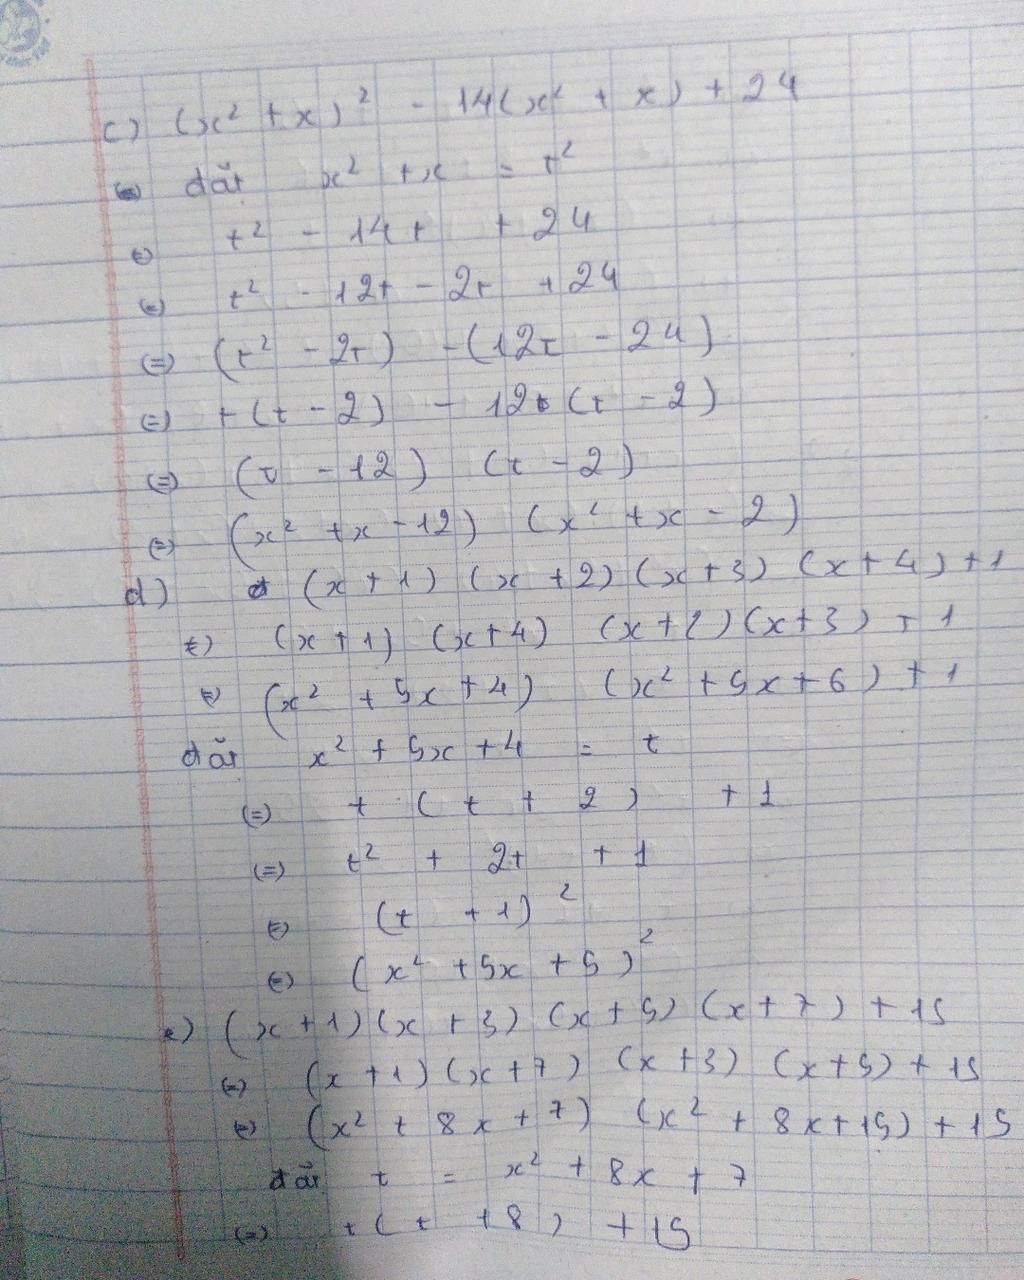 c) (x² + x)² - 14(x² + x) + 24
(=) đăt x² + x = t²
(=) t² - 14t + 24
(=) t² - 12t - 2t + 24
(=) (t² - 2t) - (12t - 24)
(=) t(t - 2) - 12 (t - 2)
(=) (t - 12) (t - 2)
(=) (x² + x - 12) (x² + x - 2)
d) (x + 1) (x + 2) (x + 3) (x + 4) + 1
(=) (x + 1) (x + 4) (x + 2) (x + 3) + 1
(=) (x² + 5x + 4) (x² + 5x + 6) + 1
đăt x² + 5x + 4 = t
(=) t (t + 2) + 1
(=) t² + 2t + 1
(=) (t + 1)²
(=) (x² + 5x + 5)²
e) (x + 1) (x + 3) (x + 5) (x + 7) + 15
(=) (x + 1) (x + 7) (x + 3) (x + 5) + 15
(=) (x² + 8x + 7) (x² + 8x + 15) + 15
đăt t = x² + 8x + 7
(=) t (t + 8) + 15